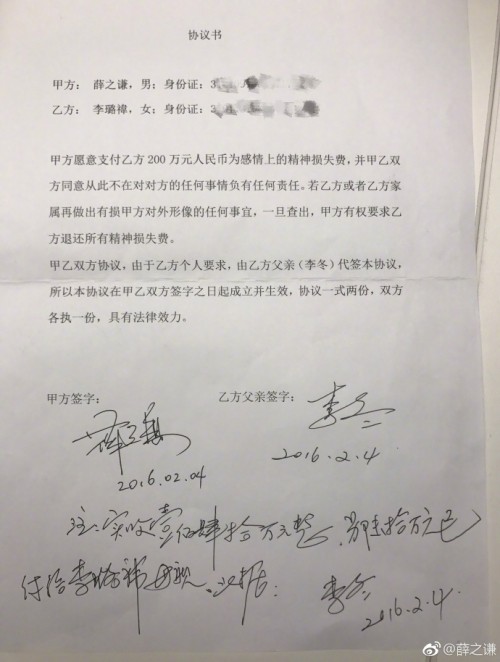 协议书
甲方：薛之谦，男；身份证：3
乙方：李璐禕，女；身份证：2
甲方愿意支付乙方 200 万元人民币为感情上的精神损失费，并甲乙双
方同意从此不在对对方的任何事情负有任何责任。若乙方或者乙方家
属再做出有损甲方对外形像的任何事宜，一旦查出，甲方有权要求乙
方退还所有精神损失费。
甲乙双方协议，由于乙方个人要求，由乙方父亲（李冬）代签本协议，
所以本协议在甲乙双方签字之日起成立并生效，协议一式两份，双方
各执一份，具有法律效力。
甲方签字： 乙方父亲签字：
薛之谦 李冬
2016.02.04 2016.2.4
注：实收壹佰肆拾万元整，拾万元已
付给李璐 母亲。
李冬
2016.2.4
@薛之谦